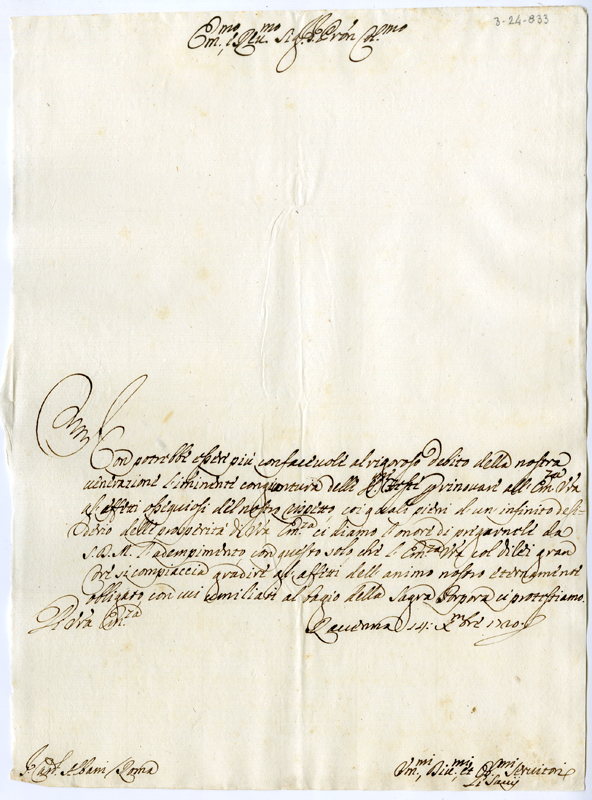 3-24-833
Em.mo, e Reu.mo Sig.r Pron Col.mo
Non potrebbe essere più confaceuole al rigoroso debito della nostra
uenerazione l'iminente congiuntura delle feste p rinouare all' Em.za Vra
gl'affetti ossequiosi del nostro rispetto coi quali pieni d'un infinito desi-
derio delle prosperità di Vra Em.za ci diamo l'onore di pregarnele da
S.D.M. l'adempimento con questo solo che l'Em.za Vra col di lei gran
core si compiaccia gradire gl'affetti dell'animo nostro eternamente
obligato con cui umiliati al bagio della Sagra Porpora ci protestiamo.
Di Vra Em.za Rauenna 14: Xmbre 1720
S. Card. Albani / Roma
Um.mi, Diu.mi, et Ob.mi Seruitori
Li Sauij